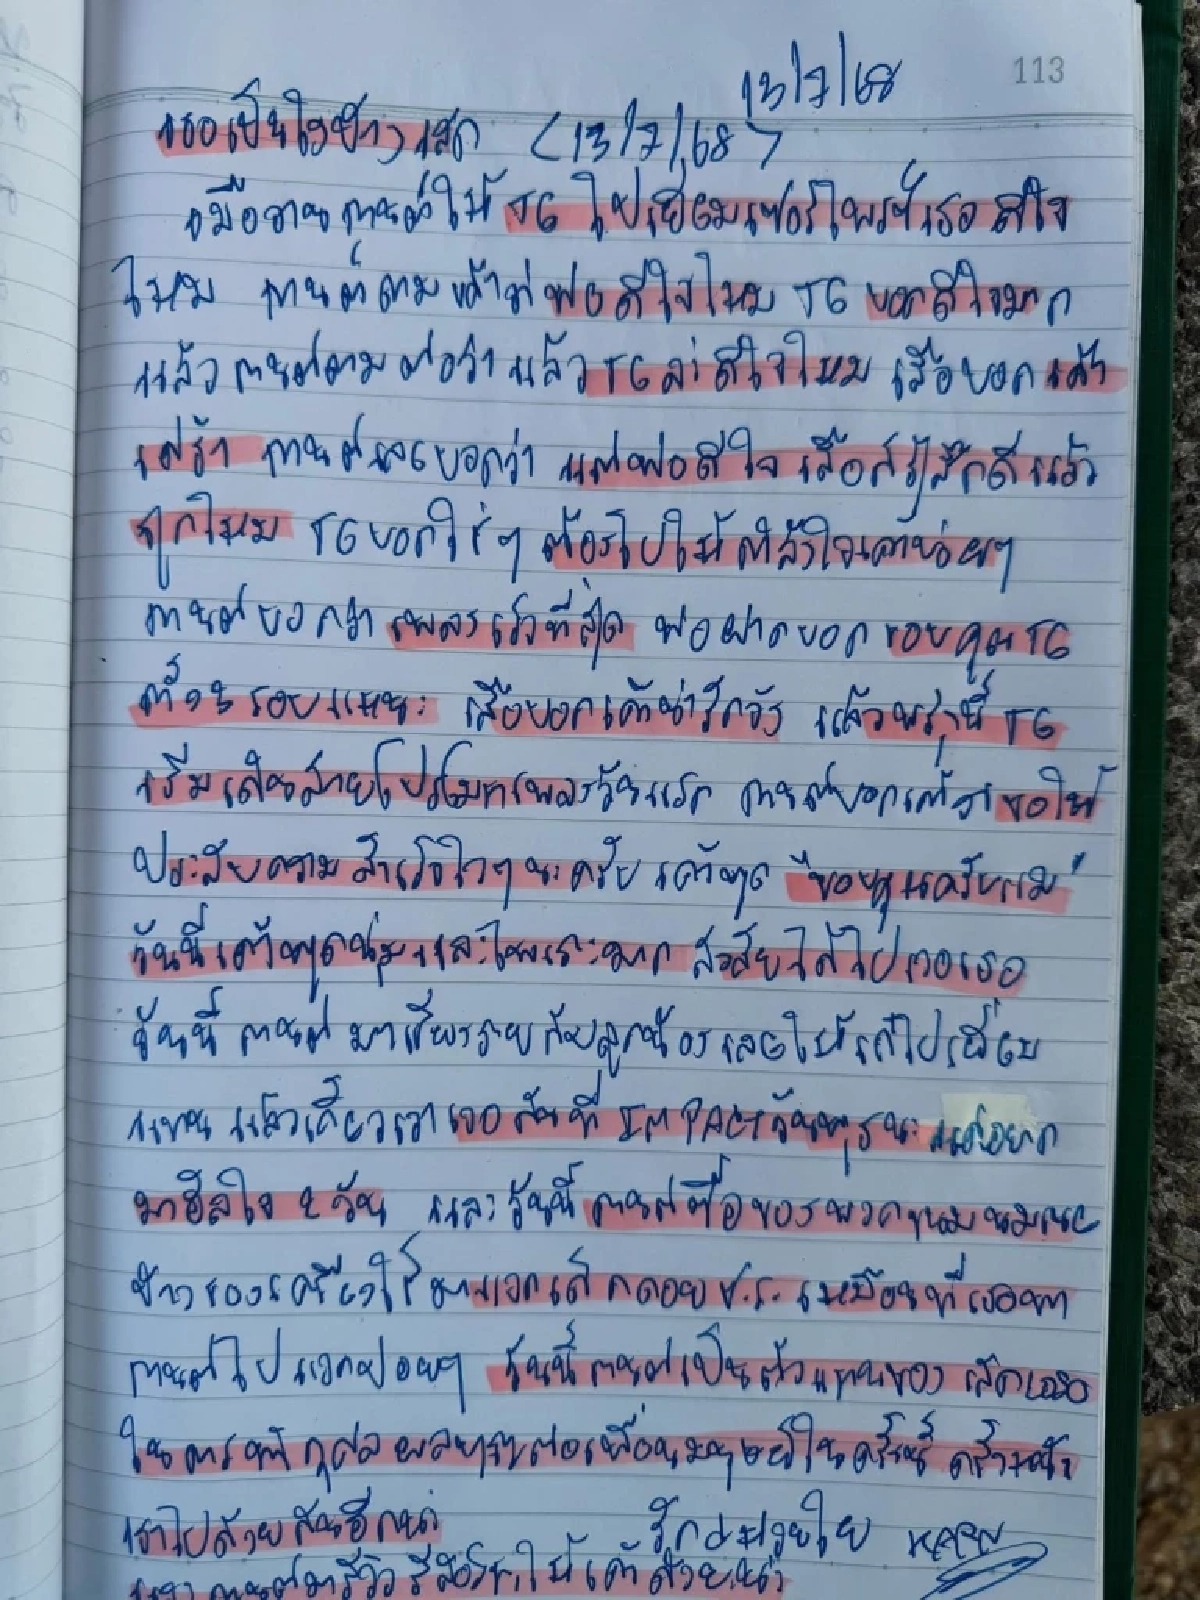 113
13/7/68
เธอเป็นไงบ้าง เสก (13/7/68)
เมื่อวานกานต์ให้ TG ไปเยี่ยมเซอร์ไพรซ์เธอ ดีใจ
ไหม กานต์ถามเค้าว่าพ่อดีใจไหม TG บอกดีใจมาก
แล้วกานต์ถามต่อว่า แล้ว TG ล่ะดีใจไหม เสือบอกเค้า
เศร้า กานต์เลยบอกว่า แต่พ่อดีใจ เสือก็รู้สึกดีแล้ว
ถูกไหม TG บอกใช่ๆ ต้องไปให้กำลังใจเค้าบ่อยๆ
กานต์บอกว่า เพลงเร็วที่สุด พ่อฝากบอกขอบคุณ TG
ด้วย เสือบอกเค้าน่ารักจัง แล้วพรุ่งนี้ TG
เริ่มเดินสายโปรโมทเพลงวันแรก กานต์บอกเค้าว่า ขอให้
ประสบความสำเร็จไวๆ นะครับ เค้าพูด ขอบคุณครับแม่
วันนี้เค้าพูดนุ่มและไพเราะมาก สงสัยได้ไปกอดเธอ
วันนี้กานต์มาเชียงรายกับลูกน้องเลยให้เค้าไปเยี่ยม
แทน แล้วเดี๋ยวเราเจอกันที่ IMPACT วันพุธนะ
มาฮีลใจ 2 วัน และวันนี้กานต์ซื้อของพวกขนมนมเนย
ข้าวของเครื่องใช้มาแจกเด็กดอย ช.ร. เหมือนที่เธอพา
กานต์ไปแจกบ่อยๆ วันนี้กานต์เป็นตัวแทนของ เสกเธอ
ในการทำกุศลผลทานต่อเพื่อนมนุษย์ในครั้งนี้ คราวหน้า
เราไปด้วยกันอีกนะ รักและห่วงใย KARN
ให้เค้าด้วยน่ะ